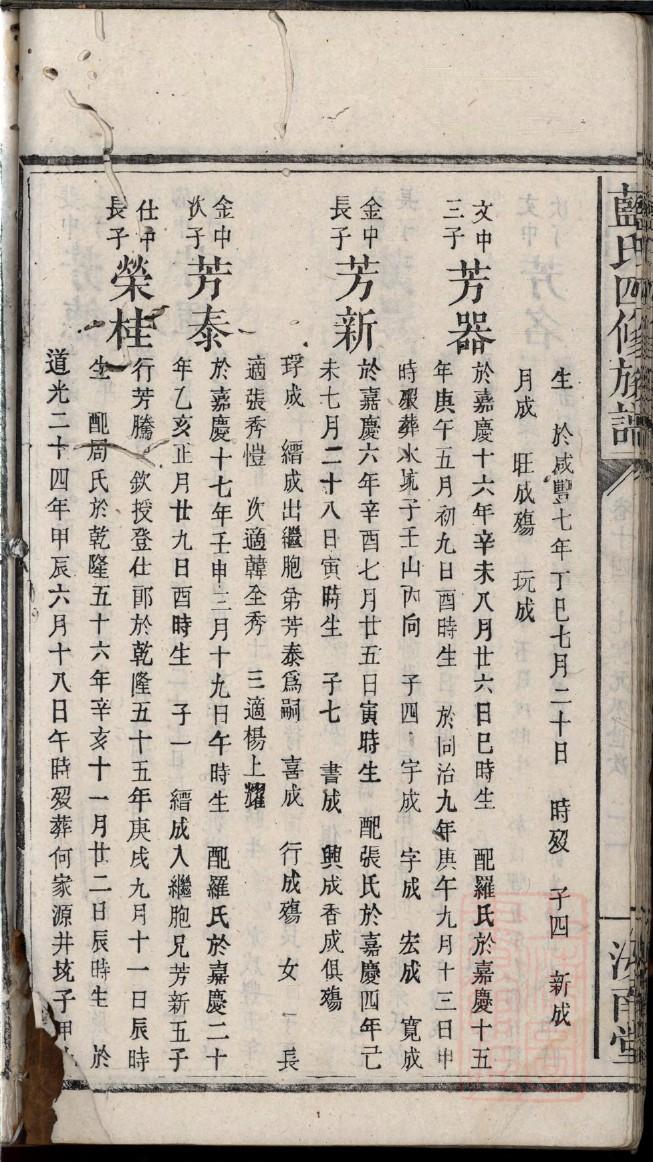 藍氏四修族譜
汝南堂
生 於咸豐七年丁巳七月二十日 時歿 子四 新成
月成 旺成殤 玩成
文中三子 芳器 於嘉慶十六年辛未八月廿六日巳時生 配羅氏於嘉慶十五
年庚午五月初九日酉時生 於同治九年庚午九月十三日申
時歿葬水坑子壬山丙向 子四 宇成 字成 宏成 寬成
金中長子 芳新 於嘉慶六年辛酉七月廿五日寅時生 配張氏於嘉慶四年己
未七月二十八日寅時生 子七 書成 興成香成俱殤
琈成 縉成出繼胞弟芳泰爲嗣 喜成 行成殤 女三 長
適張秀愷 次適韓全秀 三適楊上耀
金中次子 芳泰 於嘉慶十七年壬申三月十九日午時生 配羅氏於嘉慶二十
年乙亥正月廿九日酉時生 子一 縉成入繼胞兄芳新五子
仕中長子 榮桂 行芳騰 欽授登仕郎於乾隆五十五年庚戌九月十一日辰時
生 配周氏於乾隆五十六年辛亥十一月廿二日辰時生 於
道光二十四年甲辰六月十八日午時歿葬何家源井坑子甲